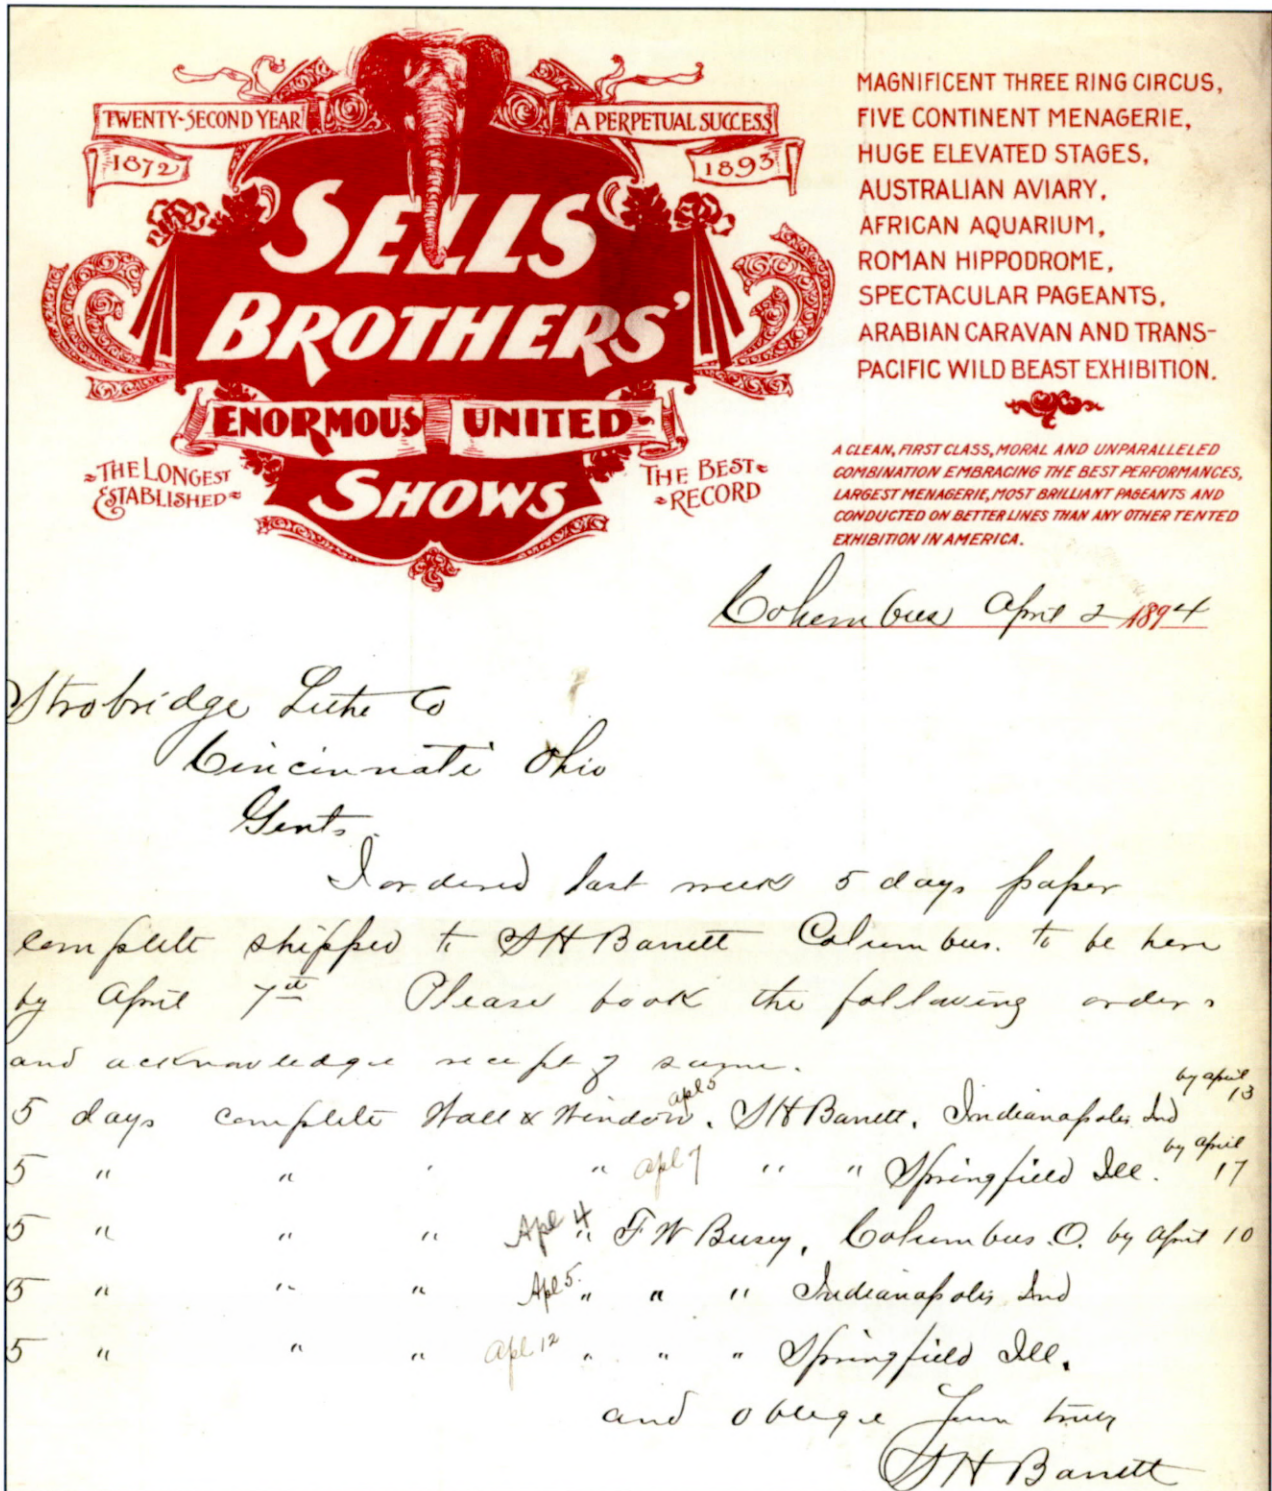 TWENTY-SECOND YEAR
A PERPETUAL SUCCESS
1872
1893
SELLS
BROTHERS'
ENORMOUS UNITED
SHOWS
THE LONGEST
ESTABLISHED
THE BEST
RECORD
MAGNIFICENT THREE RING CIRCUS,
FIVE CONTINENT MENAGERIE,
HUGE ELEVATED STAGES,
AUSTRALIAN AVIARY,
AFRICAN AQUARIUM,
ROMAN HIPPODROME,
SPECTACULAR PAGEANTS,
ARABIAN CARAVAN AND TRANS-
PACIFIC WILD BEAST EXHIBITION.
A CLEAN, FIRST CLASS, MORAL AND UNPARALLELED
COMBINATION EMBRACING THE BEST PERFORMANCES,
LARGEST MENAGERIE, MOST BRILLIANT PAGEANTS AND
CONDUCTED ON BETTER LINES THAN ANY OTHER TENTED
EXHIBITION IN AMERICA.
Columbus April 2 1894
Strobridge Litho Co
Cincinnati Ohio
Gents.
I ordered last week 5 days paper
complete shipped to S H Barrett Columbus. to be here
by April 7th Please book the following orders
and acknowledge receipt of same.
5 days complete Wall & Window. apl 5 S H Barrett, Indianapolis Ind by april 13
5 " " " " apl 7 " " Springfield Ill. by april 17
5 " " " Apl 4 " F W Busey, Columbus. O. by April 10
5 " " " Apl 5. " " " Indianapolis Ind
5 " " " apl 12 " " " Springfield Ill.
and oblige Yours truly
S H Barrett